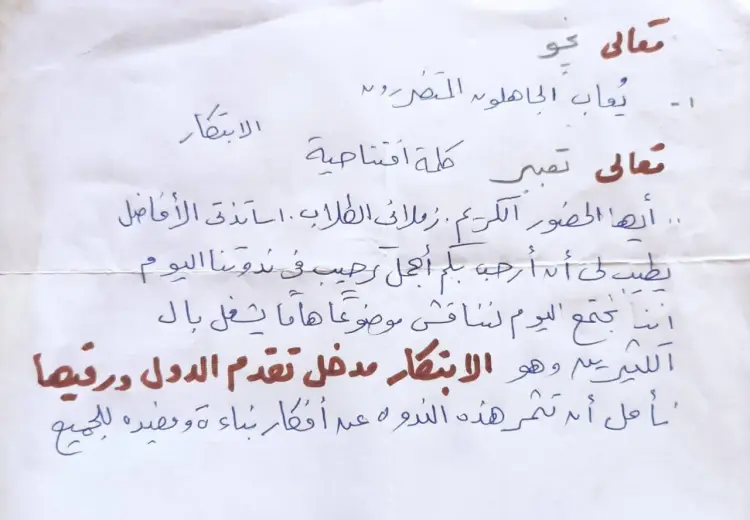 تعالى نحو
١- يُعاب الجاهلون المتضررون
الابتكار
تعالى تعبير كلمة افتتاحية
.. أيها الحضور الكريم. زملائى الطلاب. اساتذتى الأفاضل
يطيب لى أن أرحب بكم أجمل ترحيب فى ندوتنا اليوم
اننا نجتمع اليوم لنناقش موضوعًا هامًا يشغل بال
الكثيرين وهو الابتكار مدخل تقدم الدول ورقيها
نأمل أن تثمر هذه الندوه عن أفكار بناءة ومفيده للجميع